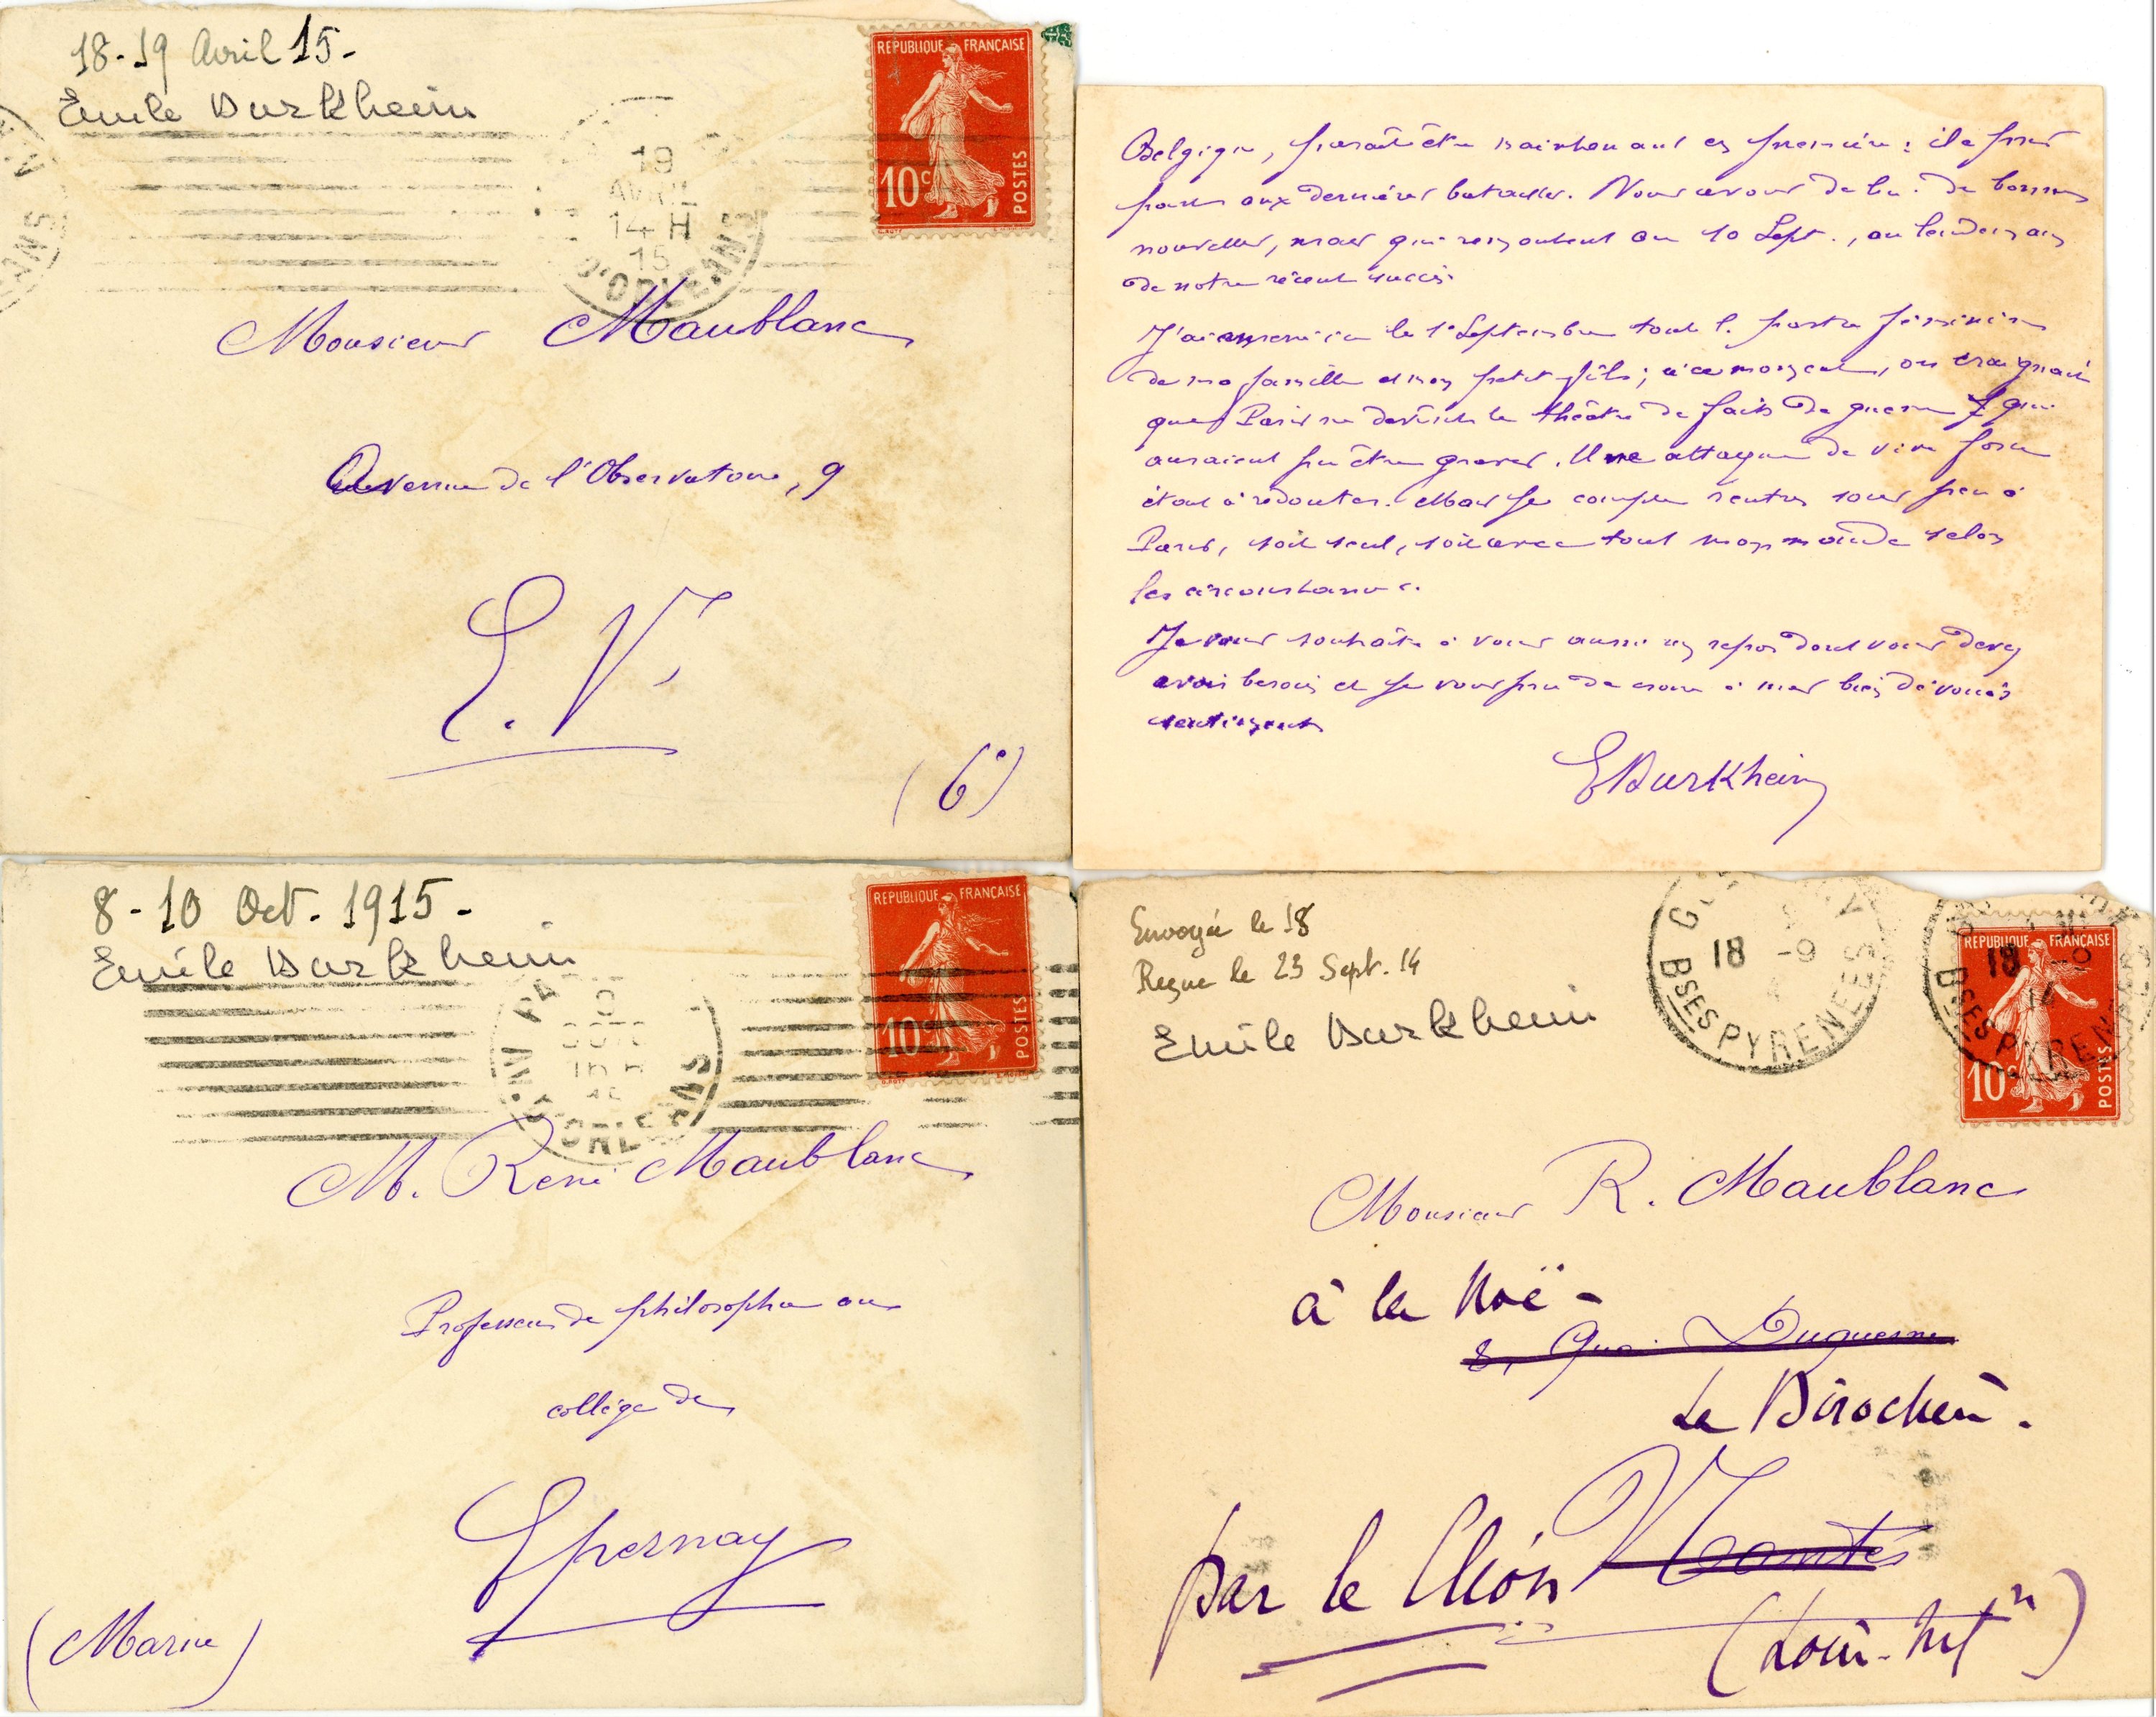 18-19 Avril 15-
Emile Durkheim
REPUBLIQUE FRANÇAISE
10c
POSTES
19
AVRIL
14 H
15
D'ORLEANS
Monsieur Maublanc
Avenue de l'Observatoire, 9
E. V.
(6e)
Belgique, paraît être maintenant en première : il a pris
part aux dernières batailles. Nous avons de lui de bonnes
nouvelles, mais qui remontent au 10 Sept., au lendemain
de notre récent succès.
J'ai amené ici le 1er Septembre toute la partie féminine
de ma famille et mon petit-fils ; à ce moment, on craignait
que Paris ne devînt le théâtre de faits de guerre qui
auraient pu être graves. Une attaque de vive force
était à redouter. Mais je compte rentrer sous peu à
Paris, soit seul, soit avec tout mon monde selon
les circonstances.
Je vous souhaite à vous aussi un repos dont vous devez
avoir besoin et je vous prie de croire à mes bien dévoués
sentiments
E Durkheim
8-10 Oct. 1915-
Emile Durkheim
REPUBLIQUE FRANÇAISE
10c
POSTES
ORLEANS
M. René Maublanc
Professeur de philosophie au
collège de
Epernay
(Marne)
Envoyée le 18
Reçue le 23 Sept. 14
Emile Durkheim
18 -9
BSES PYRENEES
REPUBLIQUE FRANÇAISE
18 -9
14
BSES PYREN
10c
POSTES
Monsieur R. Maublanc
à la Noë -
8, Quai Duquesne
Le Birochère.
par le Clion
Nantes
(Loire-Infre)